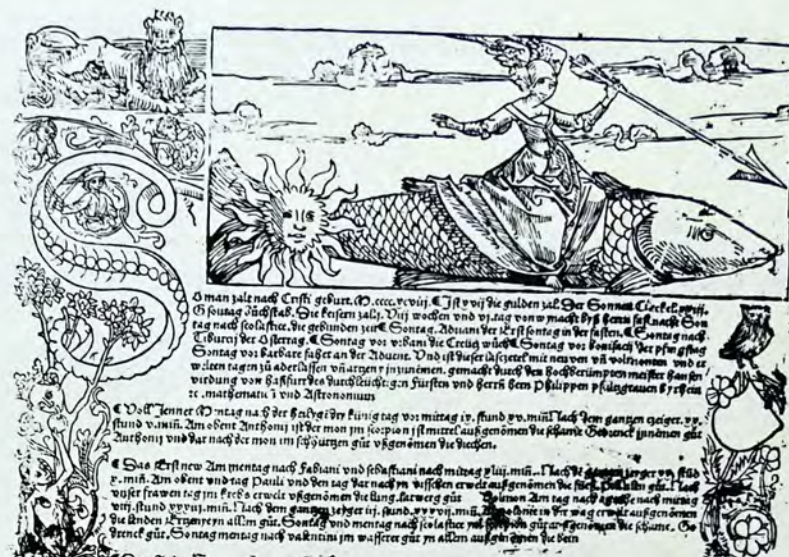 S
o man zalt nach Cristi geburt. M.cccc.xcviij. Ist xvij die gulden zal. Der Sonnen Circkel
G sontag Bůchstab. Die keisern zal j. Viij wochen und vj. tag von w macht byß herrn faßnacht Son
tag nach scolastice, die gebunden zeit Sontag. Aduani der Erst sontag in der fasten. Sontag nach
Tiburcij der Ostertag. Sontag vor vrbani die Creütz wůch Sontag vor bonifacij der pfingstag
Sontag vor barbare fahet an der Aduent. Vnd ist dieser laßzetel mit neuwen vñ volmonten vnd er
welten tagen zů aderlassen vñ artzeny jnzůnemen. gemacht durch den hochberümpten meister hansen
virdung von haßfurt des durchleüchtigen Fürsten und herrñ hern Philippen pfaltzgrauen by rhein
ꝛc. mathematicū vnd Astronomum
Voll Jenner Mõtag nach der heilgẽ dry künig tag vor mittag ix. stund xv. miñ. Nach dem gantzen zeiger. xv.
stund v. miñ. Am obent Anthonij ist der mon jm scorpion ist mittel außgenõmen die schame Getrenck jnnemen gůt
Anthonij vnd dar nach der mon im schützen gůt vßgenõmen die diechen.
Das Erst new Am mentag nach Fabiani vnd sebastiani nach mittag xlvj. miñ. Nach dẽ gantzen zeyger xx. stūd
x. miñ. Am obent vnd tag Pauli vnd den tag dar nach yn visschen erwelt außgenõmen die füeß. gůt. Nach
vnser frawen tag jm krebs erwelt vßgenõmen die lung. latwerg gůt Volmon Am tag nach nach mittag
viij. stund xxvij. miñ. Nach dem gantzen zeiger iij. stund. xxvij. miñ. in der wag erwelt außgenõmen
die lenden Ertzeney in allem gůt. Sontag vnd mentag nach scolastice ym scorpion gůt außgenõmen die schame. Ge
drenck gůt. Sontag mentag nach valentini jm wasserer gůt yn allem außgenõmen die bein